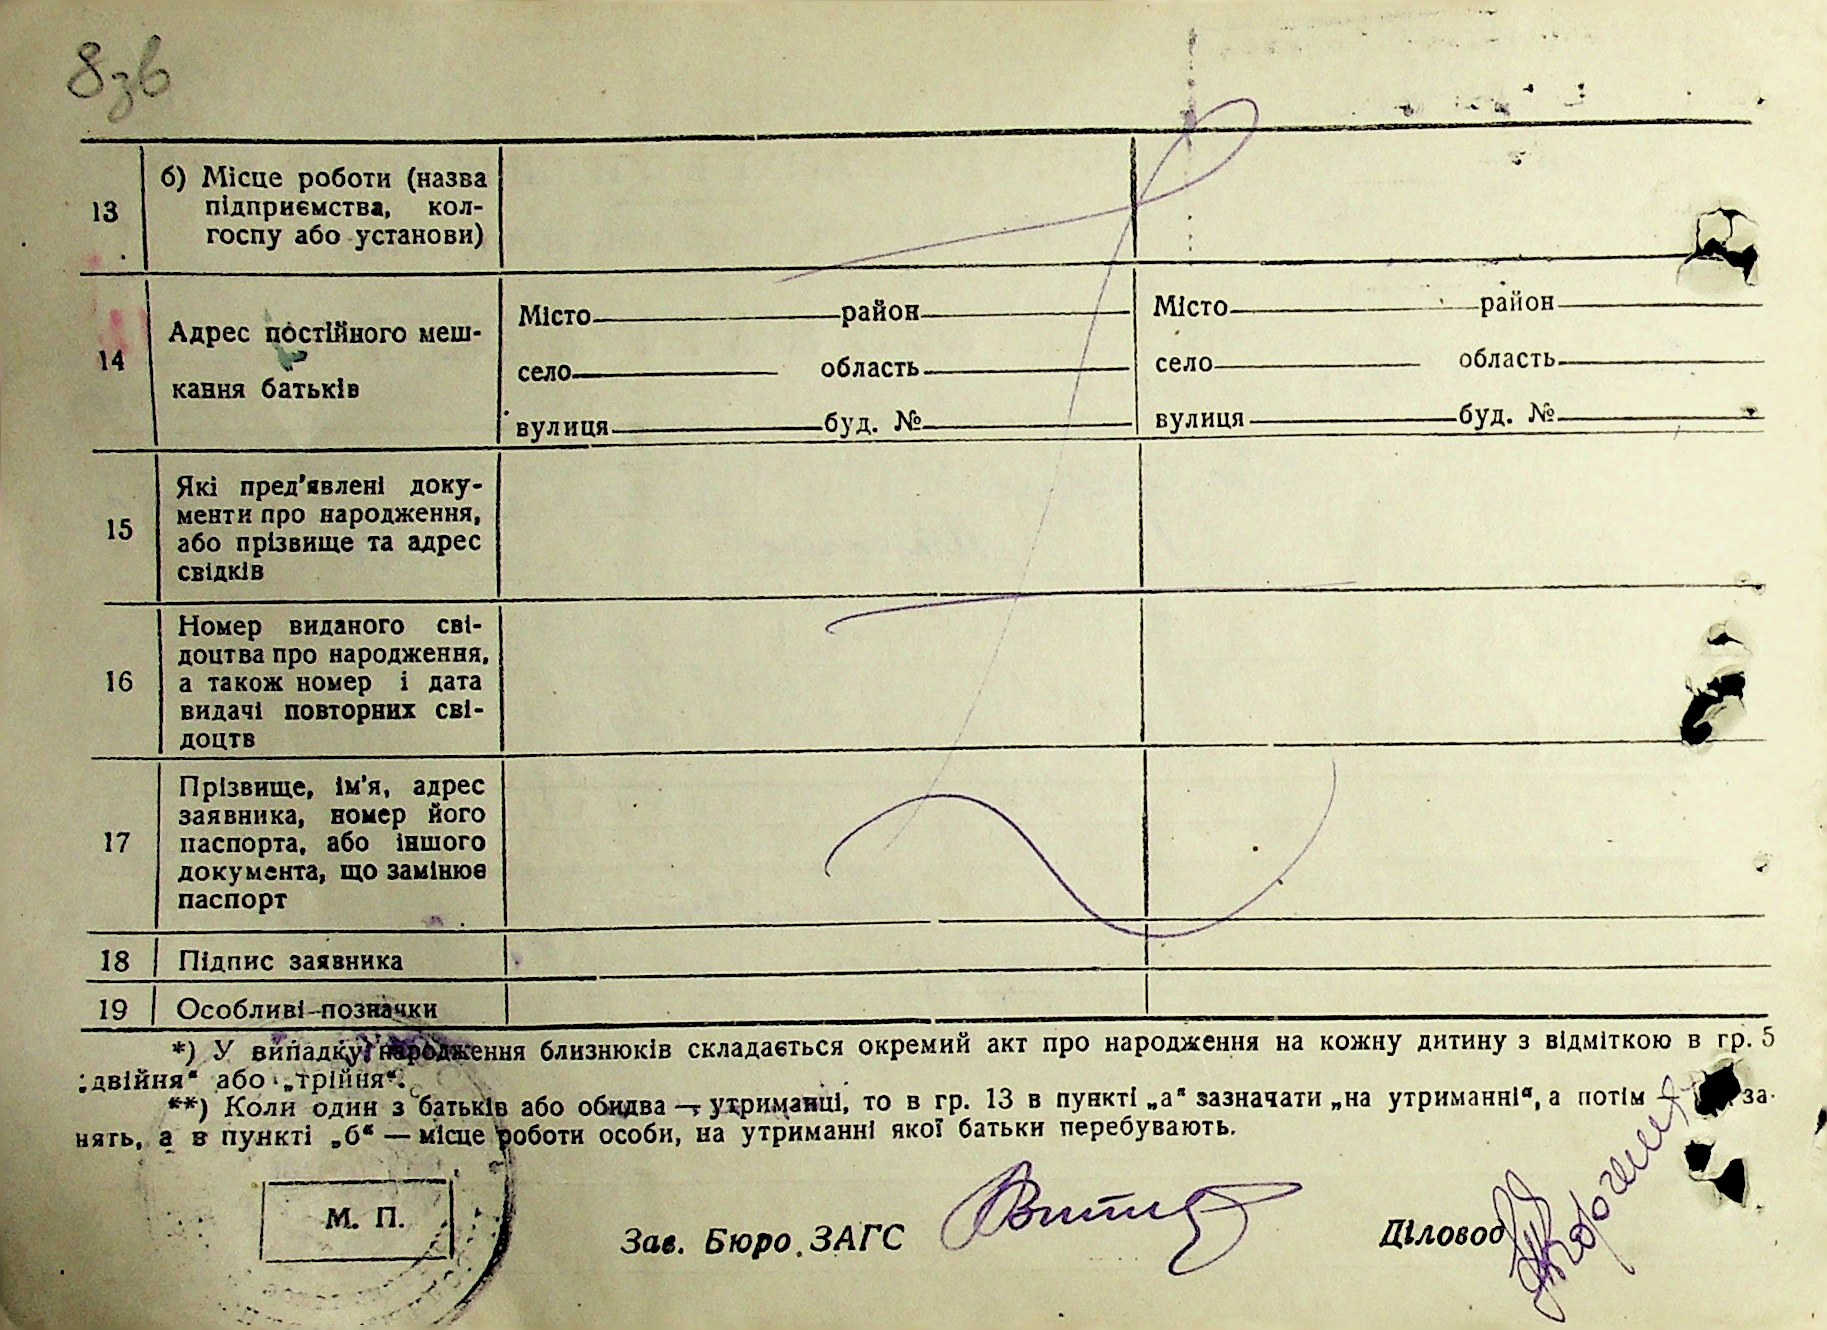 8зв
13
б) Місце роботи (назва
підприємства, кол-
госпу або установи)
14
Адрес постійного меш-
кання батьків
Місто район
село область
вулиця буд. №
Місто район
село область
вулиця буд. №
15
Які пред'явлені доку-
менти про народження,
або прізвище та адрес
свідків
16
Номер виданого сві-
доцтва про народження,
а також номер і дата
видачі повторних сві-
доцтв
17
Прізвище, ім'я, адрес
заявника, номер його
паспорта, або іншого
документа, що замінює
паспорт
18 Підпис заявника
19 Особливі позначки
*) У випадку народження близнюків складається окремий акт про народження на кожну дитину з відміткою в гр. 5
„двійня“ або „трійня“.
**) Коли один з батьків або обидва — утриманці, то в гр. 13 в пункті „а“ зазначати „на утриманні“, а потім за-
нять, а в пункті „б“ — місце роботи особи, на утриманні якої батьки перебувають.
М. П.
Зав. Бюро ЗАГС
Діловод